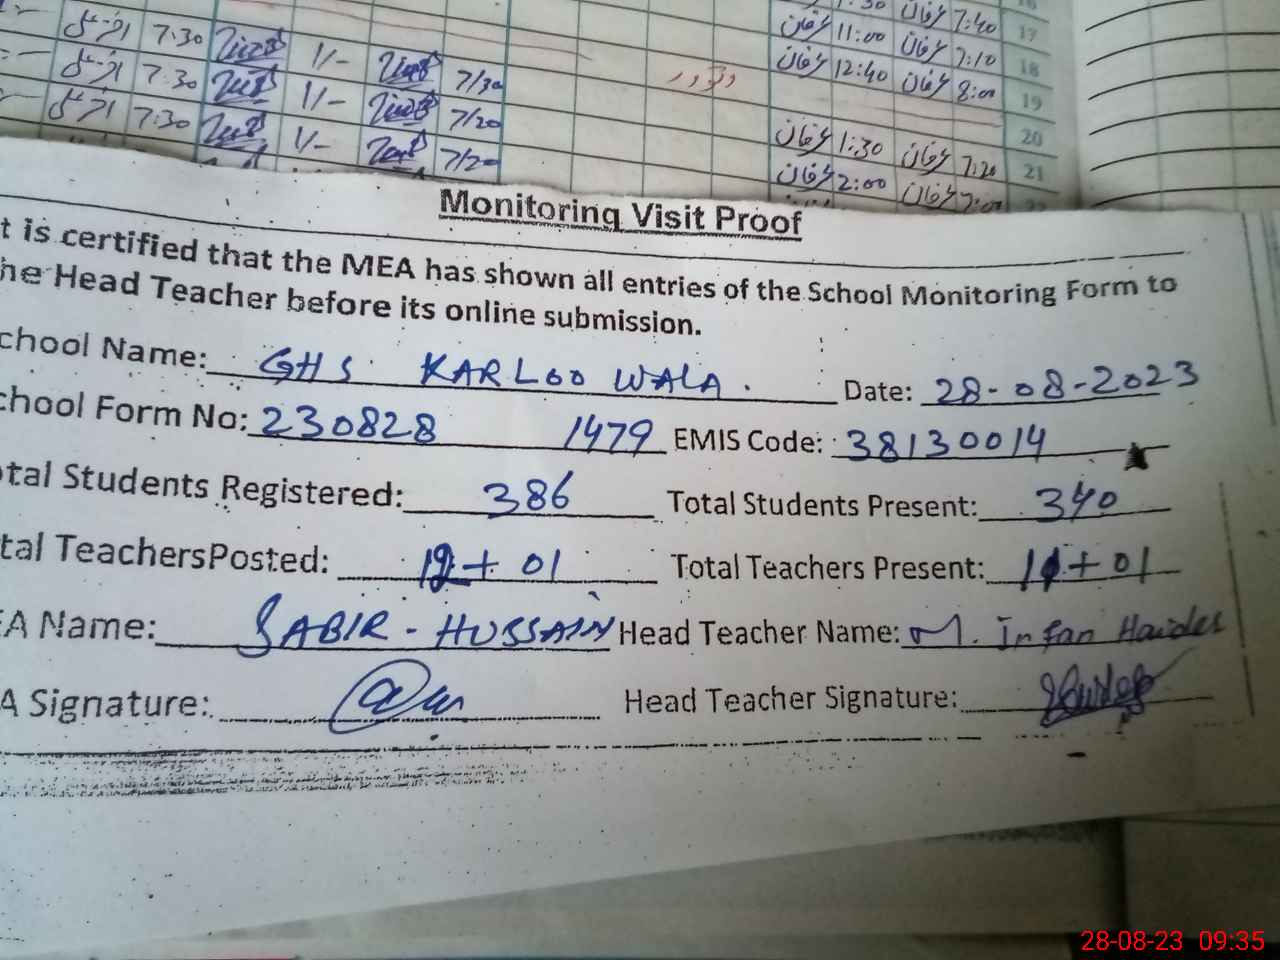 7:30 1/- 7/30
7:30 1/- 7/20
7:30 1/- 7/20
7:40 17
11:00 7:10 18
12:40 8:00 19
20
1:30 7:20 21
2:00
Monitoring Visit Proof
t is certified that the MEA has shown all entries of the School Monitoring Form to
he Head Teacher before its online submission.
chool Name: GHS KARLOO WALA. Date: 28-08-2023
chool Form No: 230828 1479 EMIS Code: 38130014
otal Students Registered: 386 Total Students Present: 340
tal TeachersPosted: 12+01 Total Teachers Present: 11+01
EA Name: SABIR-HUSSAIN Head Teacher Name: M. Irfan Haider
A Signature: Head Teacher Signature:
28-08-23 09:35